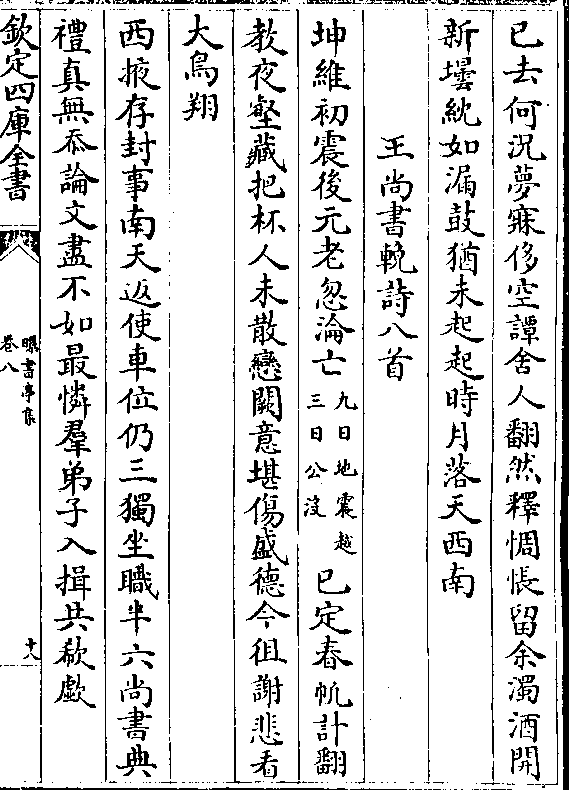 已去何況夢寐侈空譚舍人翻然釋惆悵留余濁酒開
新壜紞如漏鼓猶未起起時月落天西南
王尚書輓詩八首
坤維初震後元老忽淪亡九日地震越三日公沒已定春帆計翻
教夜壑藏把杯人未散戀闕意堪傷盛德今徂謝悲看
大鳥翔
西掖存封事南天返使車位仍三獨坐職半六尚書典
禮真無忝論文盡不如最憐羣弟子入揖共欷歔
欽定四庫全書
曝書亭集
卷八
十八